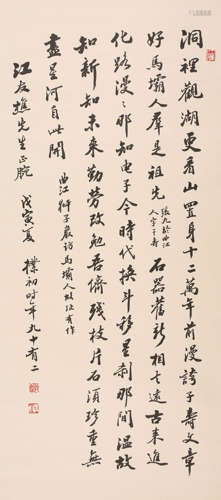 洞裡觀湖更看山置身十二萬年前漫誇子壽文章
好馬壩人羣是祖先張九齡曲江人字子壽石器舊新相去遠古來進
化路漫漫那知电子今時代換斗移星刹那間温故
知新知未來勤勞勉吾儕殘枝片石須珍重無
盡星河自此開 曲江獅子巖訪馬壩人故址有作
江友樵先生正腕
戊寅夏 樸初時年九十有二